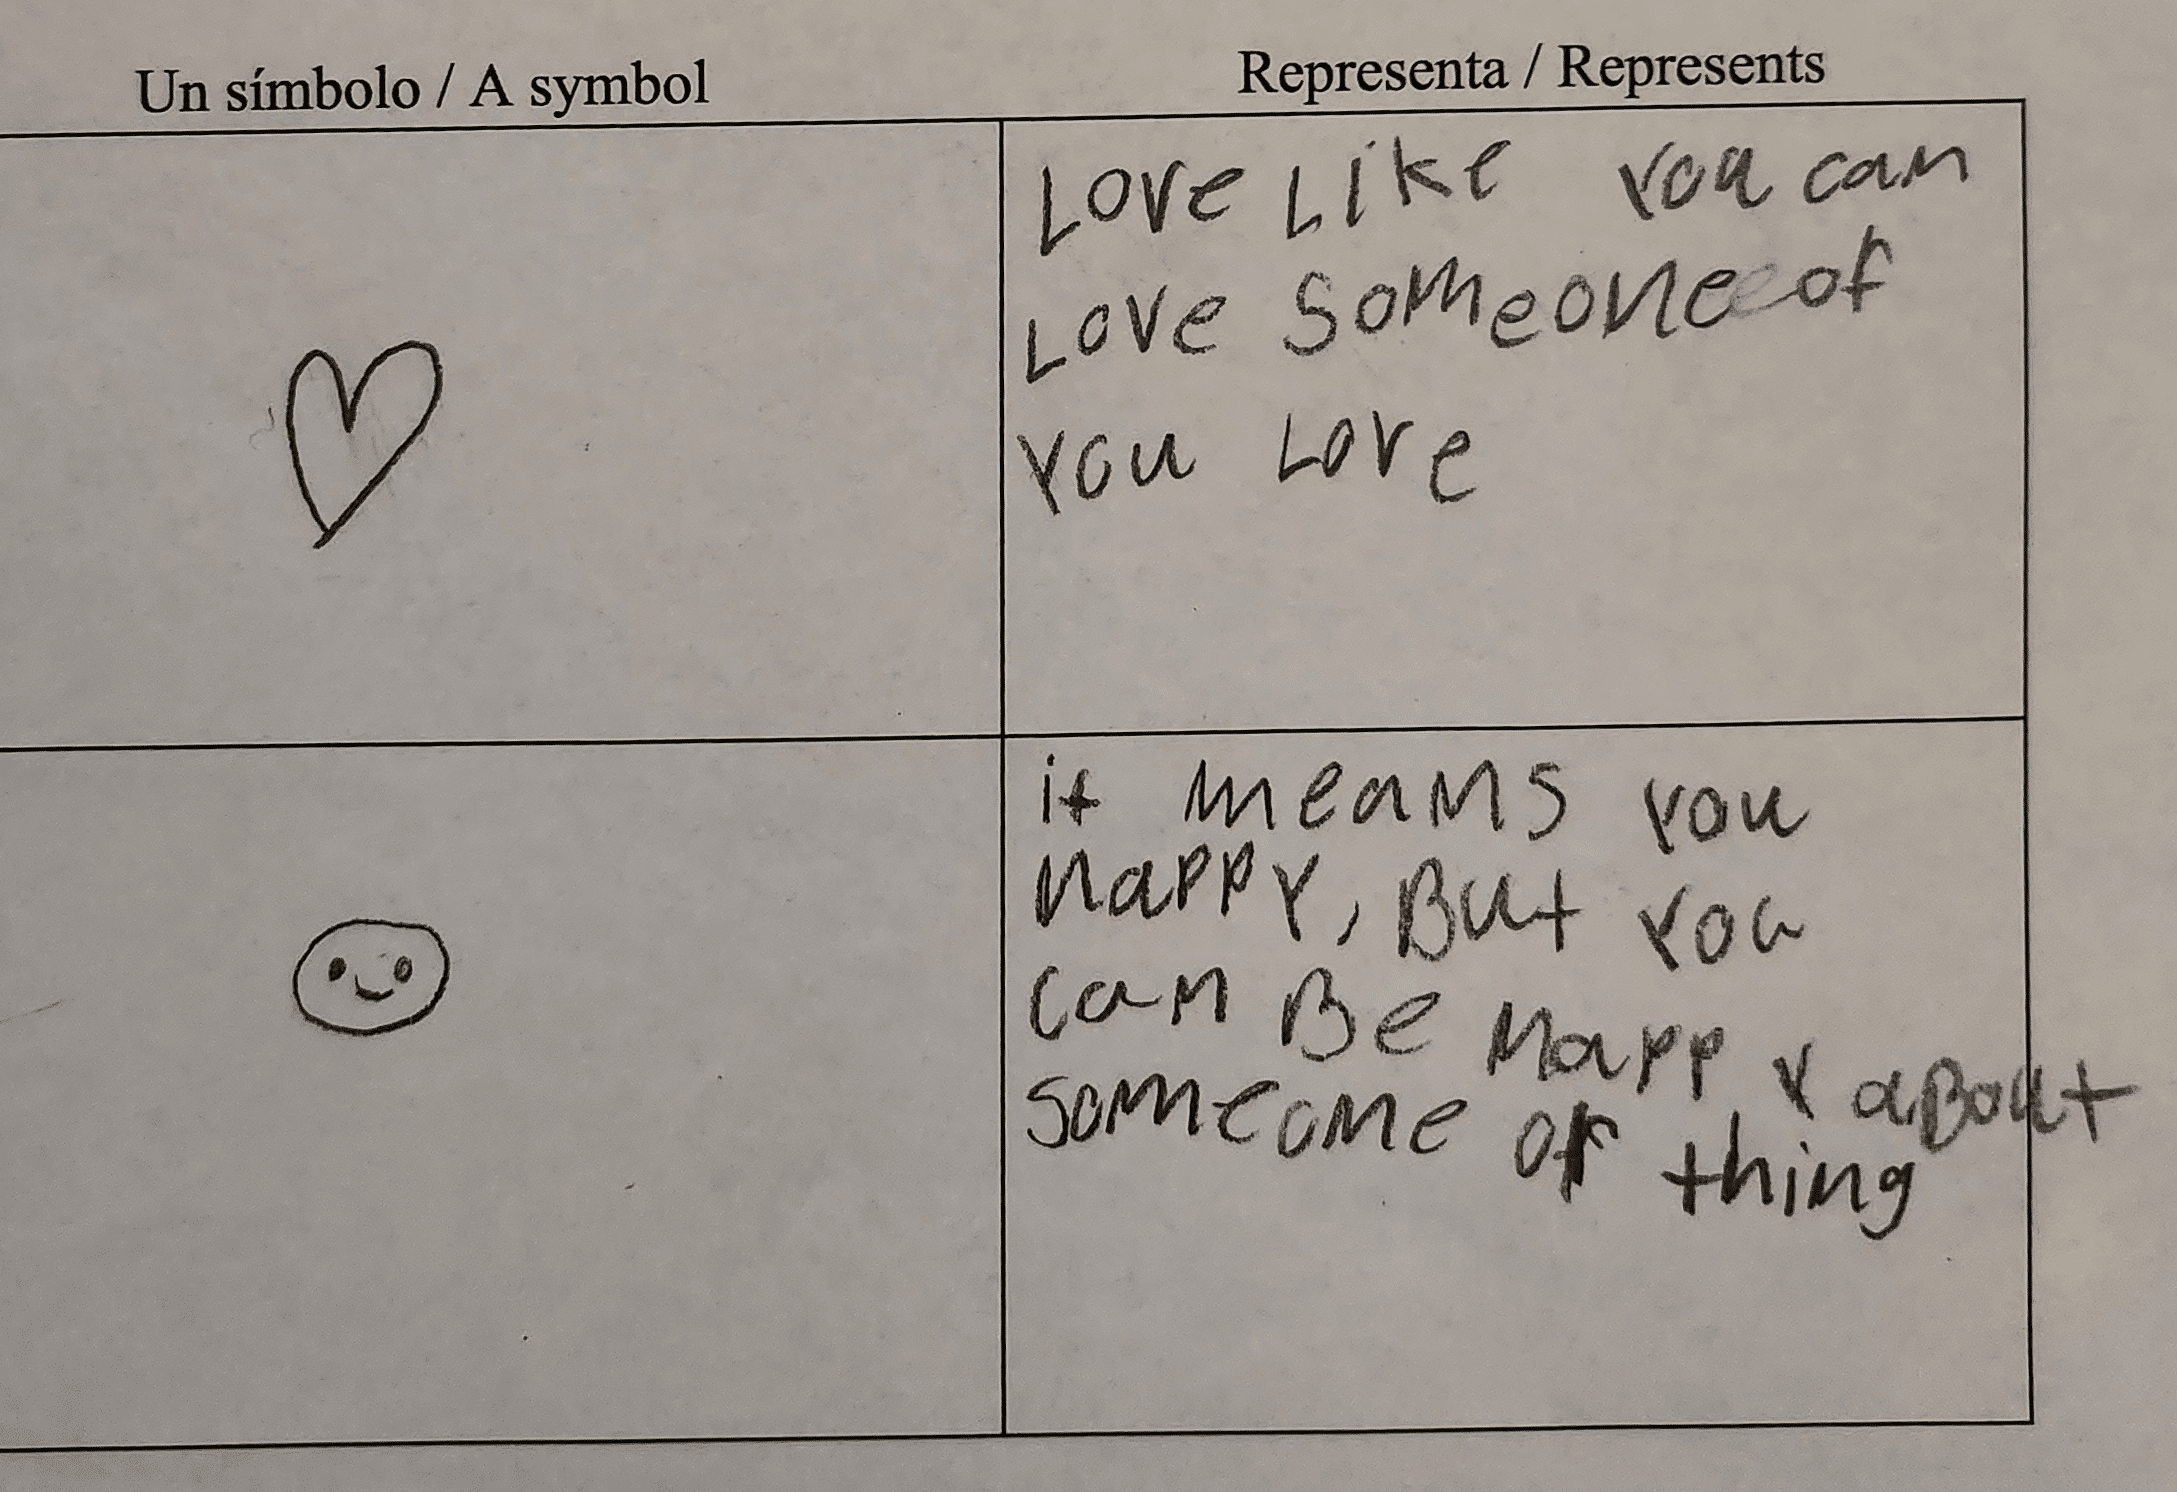 Un símbolo / A symbol
Representa / Represents
Love Like You can
Love someone of
You Love
it means you
happy, But You
can Be happy about
someone or thing